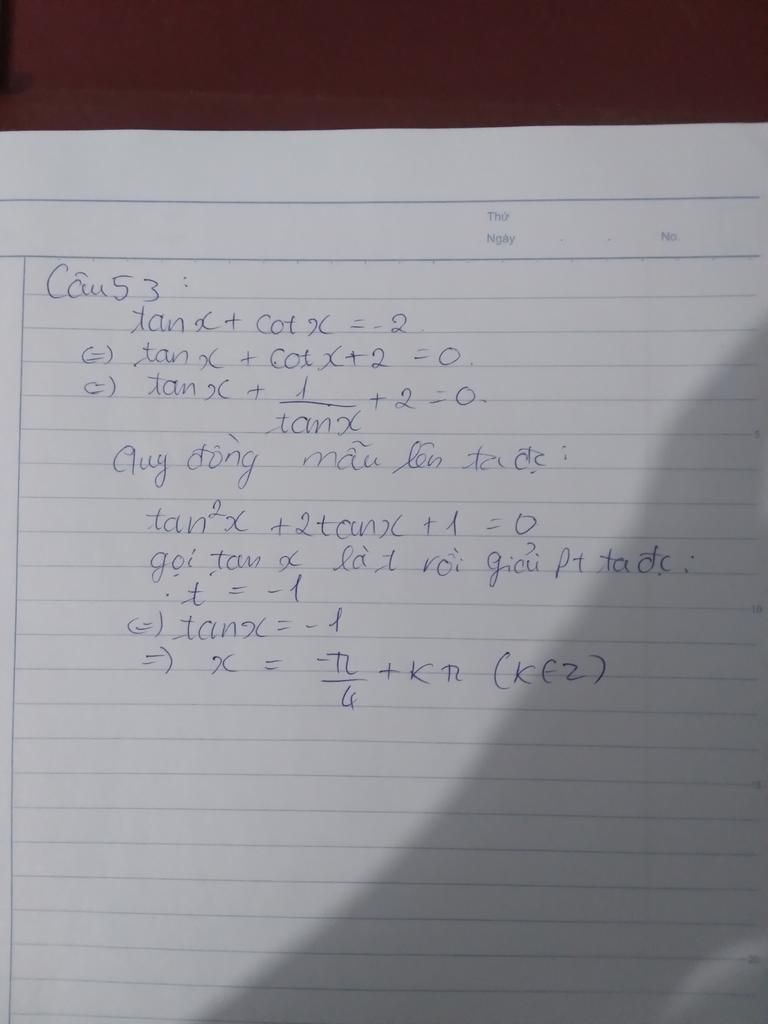 Thứ
Ngày . . No.
Câu 53 :
tan x + cot x = -2
(=) tan x + cot x + 2 = 0.
(=) tan x + 1/tan x + 2 = 0.
Quy đồng mẫu lên ta đc :
tan²x + 2tanx + 1 = 0
gọi tan x là t rồi giải pt ta đc :
. t = -1
(=) tan x = -1
=) x = -π/4 + kπ (k∈Z)
5
10
15
20